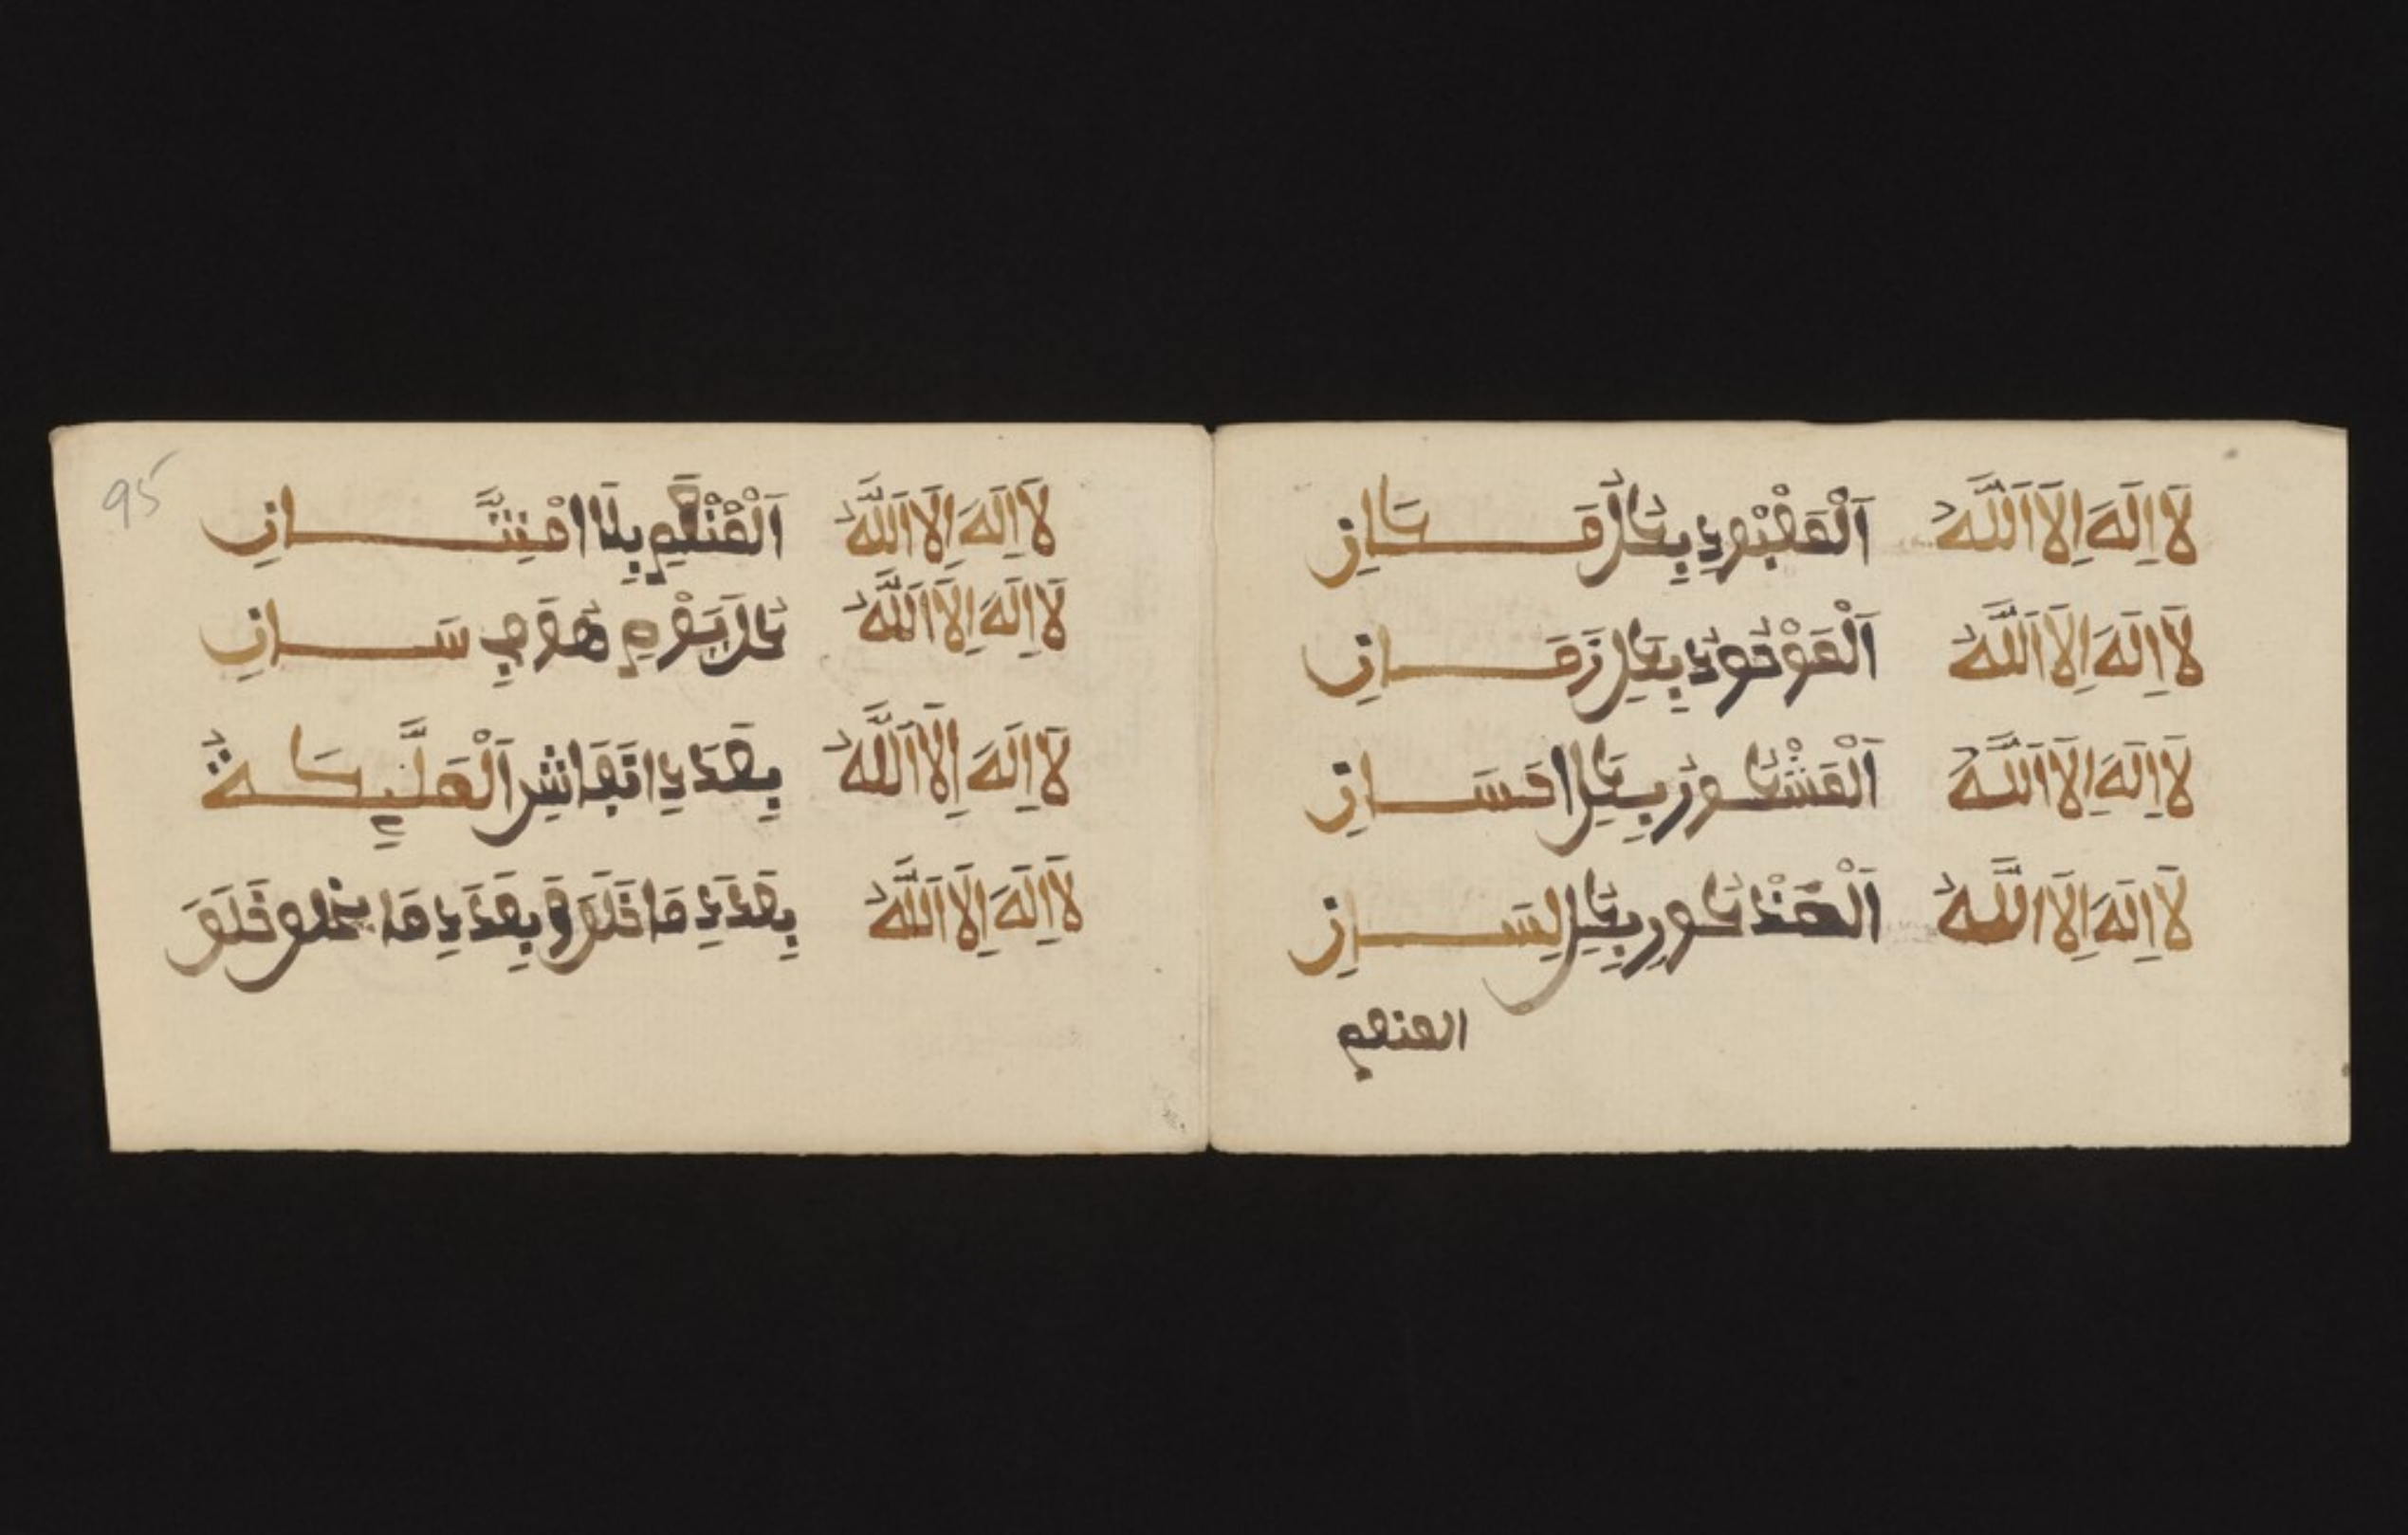 لَا اِلَهَ اِلَّا اَللَّهُ اَلْمَعْبُودِ بِكُلِّ مَكَانِ
لَا اِلَهَ اِلَّا اَللَّهُ اَلْمَوْجُودُ بِكُلِّ زَمَانِ
لَا اِلَهَ اِلَّا اَللَّهُ اَلْمَشْكُورُ بِكُلِّ احَسَانِ
لَا اِلَهَ اِلَّا اَللَّهُ اَلْمَذْكُورِ بِكُلِّ لِسَانِ
المنعم
95
لَا اِلَهَ اِلَّا اَللَّهُ اَلْمُنْعَِمِ بِلَا امْتِنَّانِ
لَا اِلَهَ اِلَّا اَللَّهُ كُلَّ يَوْمٍ هُوَ فِي سَانِ
لَا اِلَهَ اِلَّا اَللَّهُ بِعَدَدِ اَنْفَاسِ اَلْمَلَيِكَةُ
لَا اِلَهَ اِلَّا اَللَّهُ بِعَدَدِ مَا خَلَقَ وَبِعَدَدِ مَا يخلو خَلَقَ